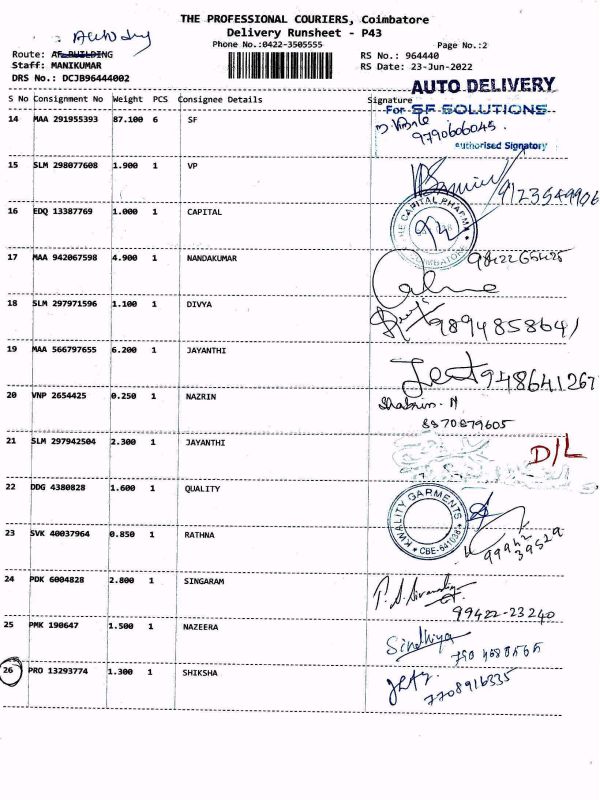 THE PROFESSIONAL COURIERS, Coimbatore
Delivery Runsheet - P43
Phone No.:0422-3505555 Page No.:2
Route: AF BUILDING RS No.: 964440
Staff: MANIKUMAR RS Date: 23-Jun-2022
DRS No.: DCJB96444002
AUTO DELIVERY
S No Consignment No Weight PCS Consignee Details Signature
For SF SOLUTIONS
14 MAA 291955393 87.100 6 SF
9790606045.
Authorised Signatory
15 SLM 298077608 1.900 1 VP
9123549906
16 EDQ 13387769 1.000 1 CAPITAL
THE CAPITAL PHARMA
COIMBATORE
17 MAA 942067598 4.900 1 NANDAKUMAR
18 SLM 297971596 1.100 1 DIVYA
9894858641
19 MAA 566797655 6.200 1 JAYANTHI
948641267
20 VNP 2654425 0.250 1 NAZRIN
8870879605
21 SLM 297942504 2.300 1 JAYANTHI D/L
22 DDG 4380828 1.600 1 QUALITY
KWALITY GARMENTS
CBE-641038
23 SVK 40037964 0.850 1 RATHNA
99942
39529
24 PDK 6004828 2.800 1 SINGARAM
99422-23240
25 PMK 190647 1.500 1 NAZEERA
Sindhiya
26 PRO 13293774 1.300 1 SHIKSHA
7708916335